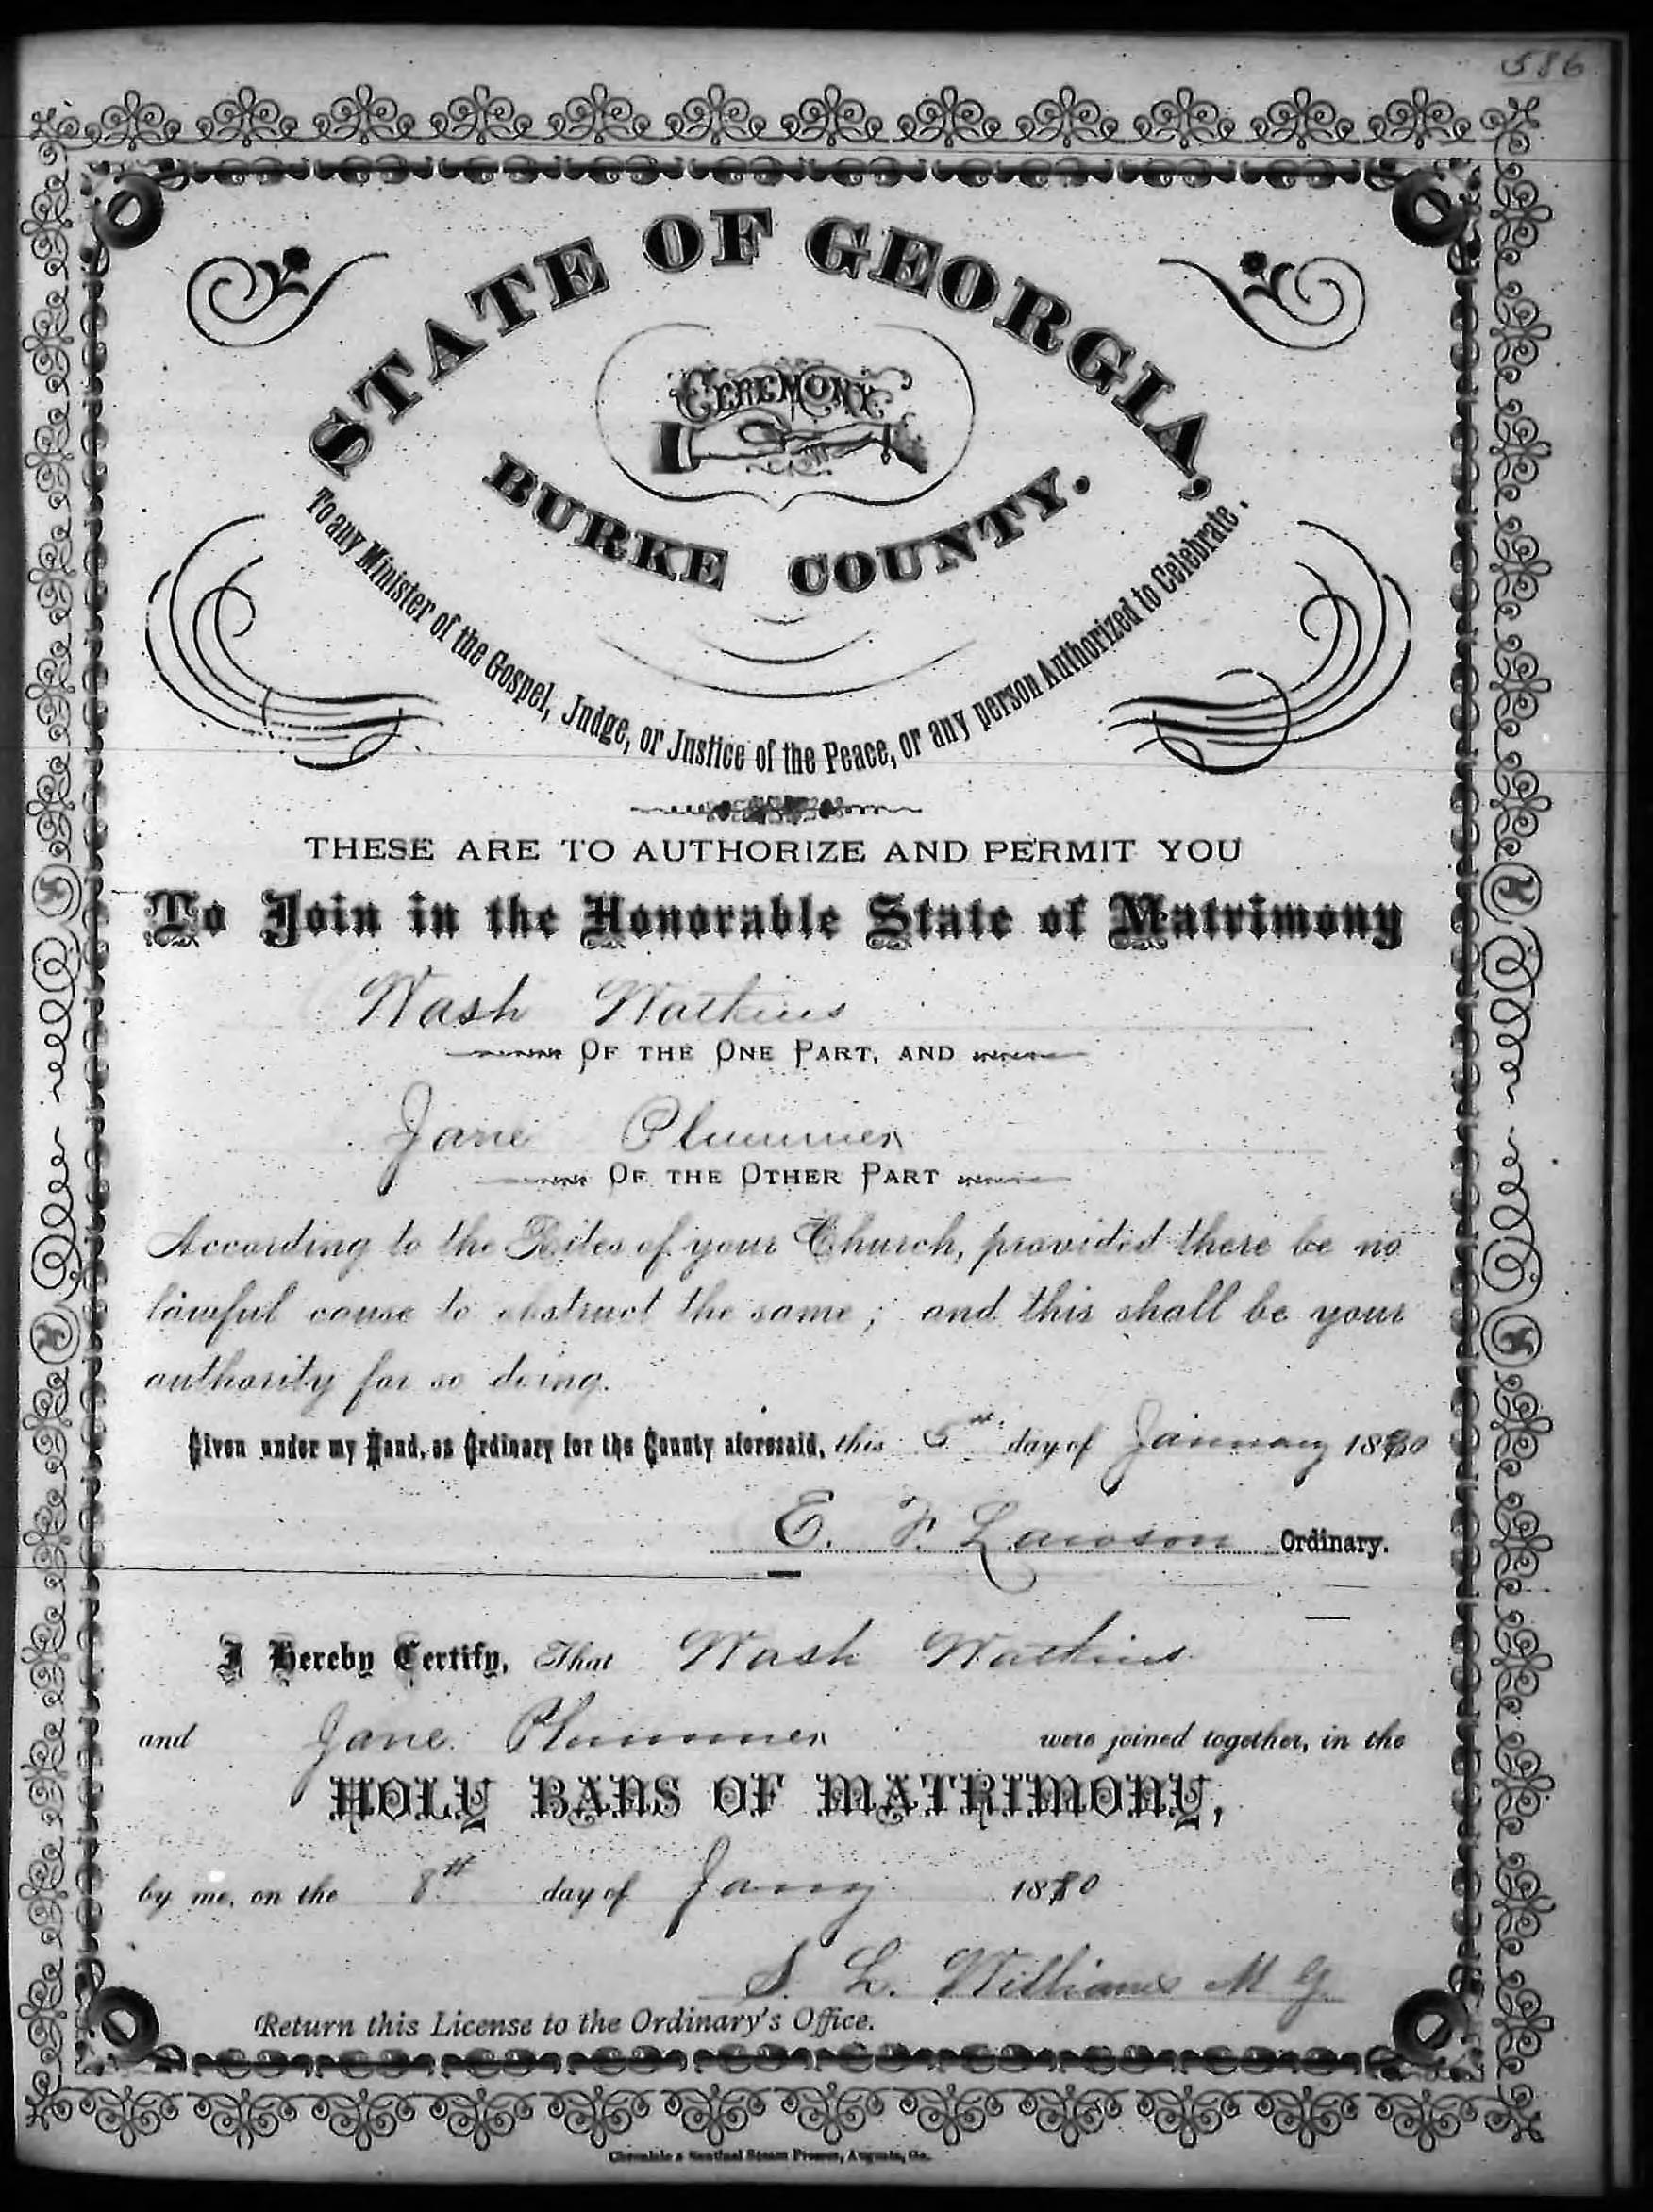 586
STATE OF GEORGIA,
CEREMONY
BURKE COUNTY.
To any Minister of the Gospel, Judge, or Justice of the Peace, or any person Authorized to Celebrate.
THESE ARE TO AUTHORIZE AND PERMIT YOU
To Join in the Honorable State of Matrimony
Wash Watkins
OF THE ONE PART, AND
Jane Plummer
OF THE OTHER PART
According to the Rites of your Church, provided there be no
lawful cause to obstruct the same; and this shall be your
authority for so doing.
Given under my Hand, as Ordinary for the County aforesaid, this 5th day of January 1880
E. F. Lawson Ordinary.
I Hereby Certify, That Wash Watkins
and Jane Plummer were joined together, in the
HOLY BANS OF MATRIMONY,
by me, on the 8th day of Jany 1880
S. L. Williams M G.
Return this License to the Ordinary's Office.
Chronicle & Sentinel Steam Presses, Augusta, Ga.